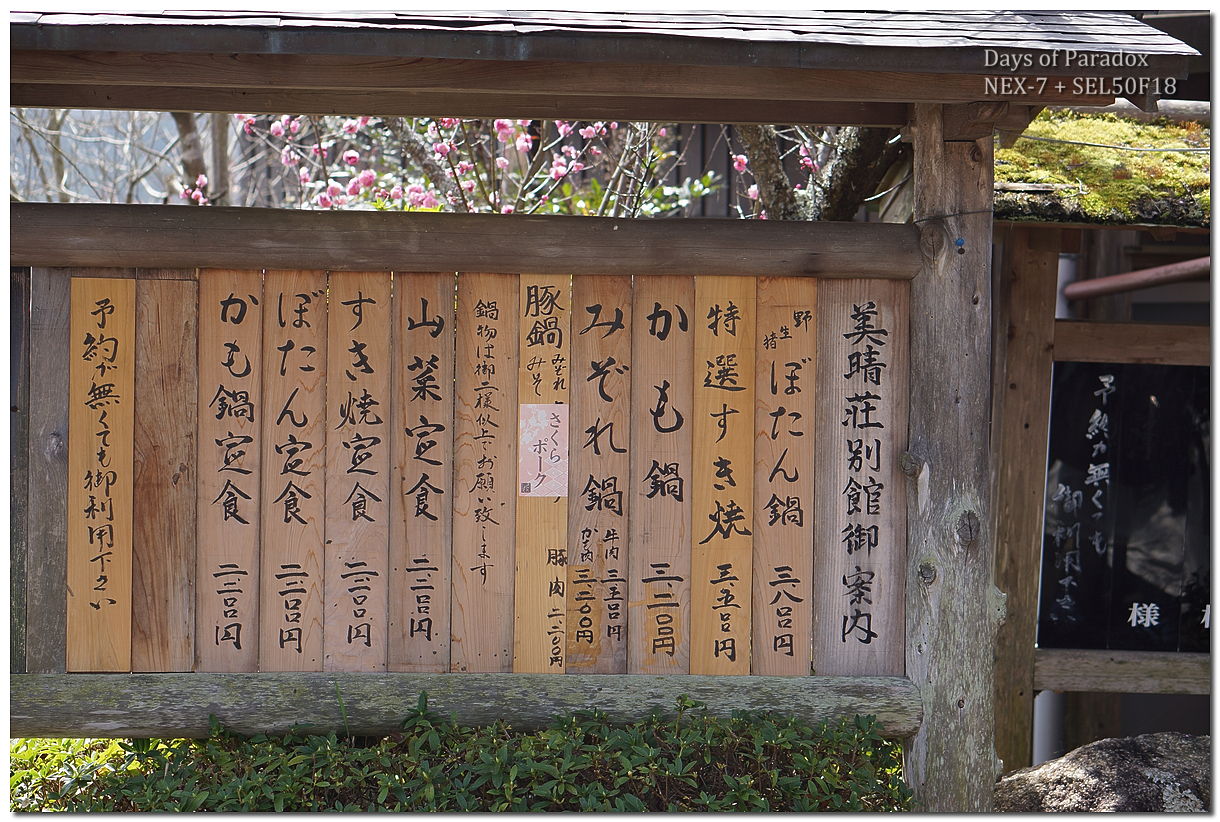 Days of Paradox
NEX-7 + SEL50F18
美晴荘別館御案内
野生猪 ぼたん鍋 三、八〇〇円
特選すき焼 三、五〇〇円
かも鍋 三、二〇〇円
みぞれ鍋 牛肉 三、五〇〇円
かも肉 三、二〇〇円
豚鍋 みぞれ
みそ
さくら
ポーク
豚肉 二、二〇〇円
鍋物は御二様以上でお願い致します
山菜定食 二、二〇〇円
すき焼定食 二、二〇〇円
ぼたん鍋定食 二、二〇〇円
かも鍋定食 二、二〇〇円
予約が無くても御利用下さい
予約が無くっも
御利用下さい
様